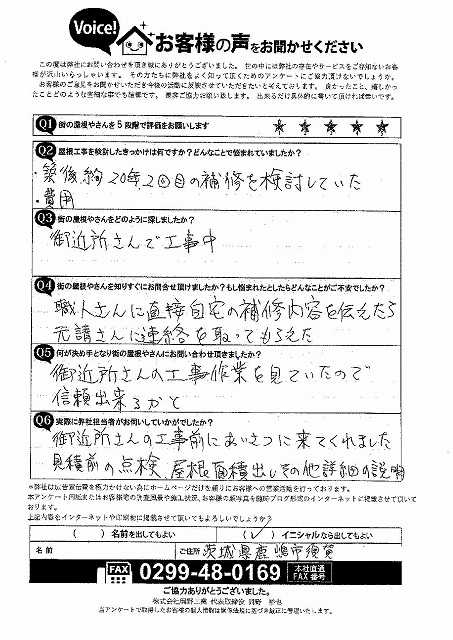 Voice!
お客様の声をお聞かせください
この度は弊社にお問い合わせを頂き誠にありがとうございました。世の中には弊社の存在やサービスをご存知ないお客
様が沢山いらっしゃいます。その方たちに弊社をよく知って頂くためのアンケートにご協力頂けないでしょうか。
お客様のご意見をお聞かせいただき今後の活動に反映させていただきたいと考えております。良かったこと、嬉しかっ
たことどのような些細な事でも結構です。是非ご協力お願い致します。出来るだけ具体的に書いて頂ければ幸いです。
Q1 街の屋根やさんを5段階で評価をお願いします ★ ★ ★ ★ ★
Q2 屋根工事を検討したきっかけは何ですか?どんなことで悩まれていましたか?
・築後約20年2回目の補修を検討していた
・費用
Q3 街の屋根やさんをどのように探しましたか?
御近所さんで工事中
Q4 街の屋根やさんを知りすぐにお問合せ頂けましたか?もし悩まれたとしたらどんなことがご不安でしたか?
職人さんに直接自宅の補修内容を伝えたら
元請さんに連絡を取ってもらえた
Q5 何が決め手となり街の屋根やさんにお問い合わせ頂きましたか?
御近所さんの工事作業を見ていたので
信頼出来るかと
Q6 実際に弊社担当者がお伺いしていかがでしたか?
御近所さんの工事前にあいさつに来てくれました
見積前の点検、屋根面積出しその他詳細の説明
*弊社は広告宣伝費を極力かけない為にホームページだけを頼りにお客様への営業活動を行っております。
本アンケート用紙またはお客様宅の決置風景や施工状況、お客様の顔写真を随時ブログ形式のインターネットに掲載させて頂いて
おります。
上記内容をインターネットや印刷物に掲載させて頂いてもよろしいでしょうか?
( )名前を出してもよい (✓)イニシャルなら出してもよい
名前 ご住所 茨城県鹿嶋市須賀
FAX 0299-48-0169 本社直通 FAX番号
ご協力ありがとうございました。
株式会社岡野工業 代表取締役 岡野
当アンケートで取得したお客様の個人情報は保護法規に基づき厳正に管理いたします。